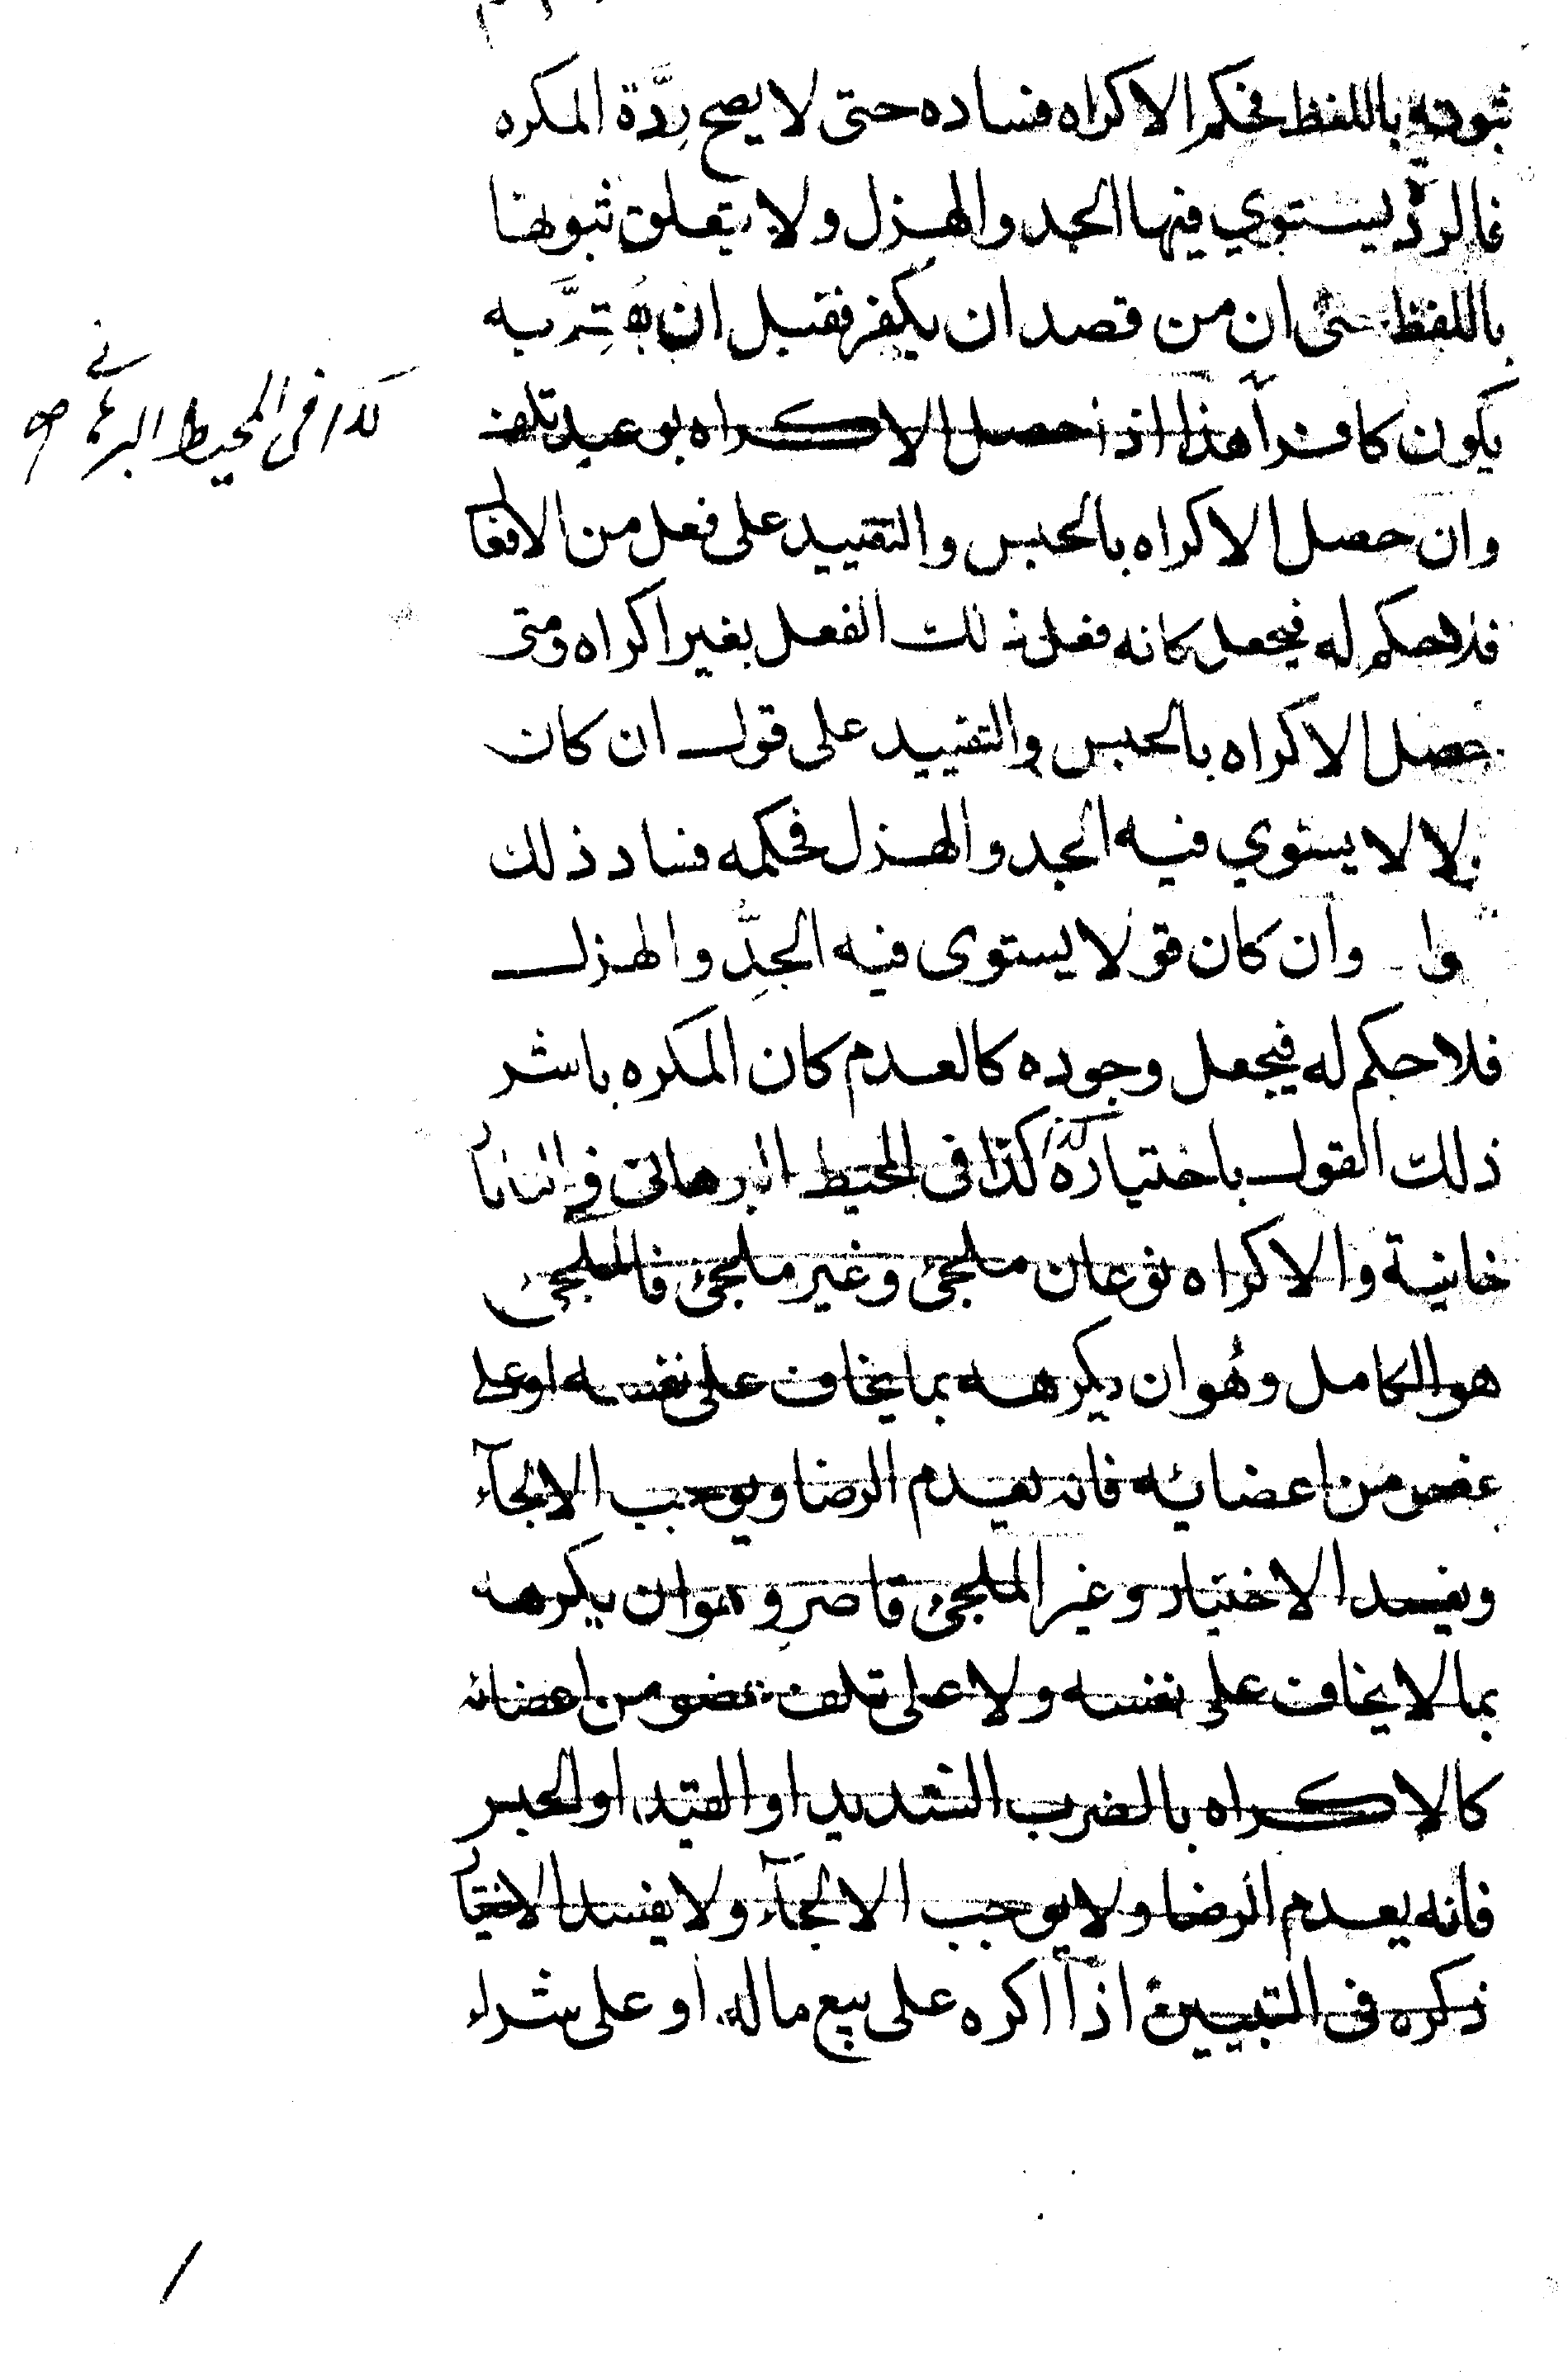 ثبوته باللفظ فحكم الاكراه فساده حتى لا يصح رِدَّة المكره
فالرد يستوي فيها الجد والهزل ولا يتعلق ثبوتها
باللفظ حتى ان من قصد ان يكفر فقبل ان به
يكون كافراً هذا اذا حصل الاكراه بوعيد تلف
كذا فى المحيط البرهاني
وان حصل الاكراه بالحبس والتقييد على فعل من الافعا
فلا حكم له فيجعل كانه فعل ذلك الفعل بغير اكراه ومتى
حصل الاكراه بالحبس والتقييد على قول ان كان
لا لا يستوي فيه الجد والهزل فحكمه فساد ذلك
وا وان كان قولا يستوى فيه الجِدُّ والهزل
فلا حكم له فيجعل وجوده كالعدم كان المكره باشر
ذلك القول باختياره كذا فى المحيط البرهانى فى
خانية والاكراه نوعان ملجئ وغير ملجئ فالملجئ
هو الكامل وهُو ان يكرهه بما يخاف على نفسه او على
عضو من اعضائه فانه يعدم الرضا ويوجب الالجآء
ويفسد الاختيار وغير الملجئ قاصر وهو ان يكرهه
بما لا يخاف على نفسه ولا على تلف عضو من اعضائه
كالاكراه بالضرب الشديد او القيد او الحبس
فانه يعدم الرضا ولا يوجب الالجآء ولا يفسد الاختيا
ذكره فى التبيين اذا اكره على بيع ماله او على شراء